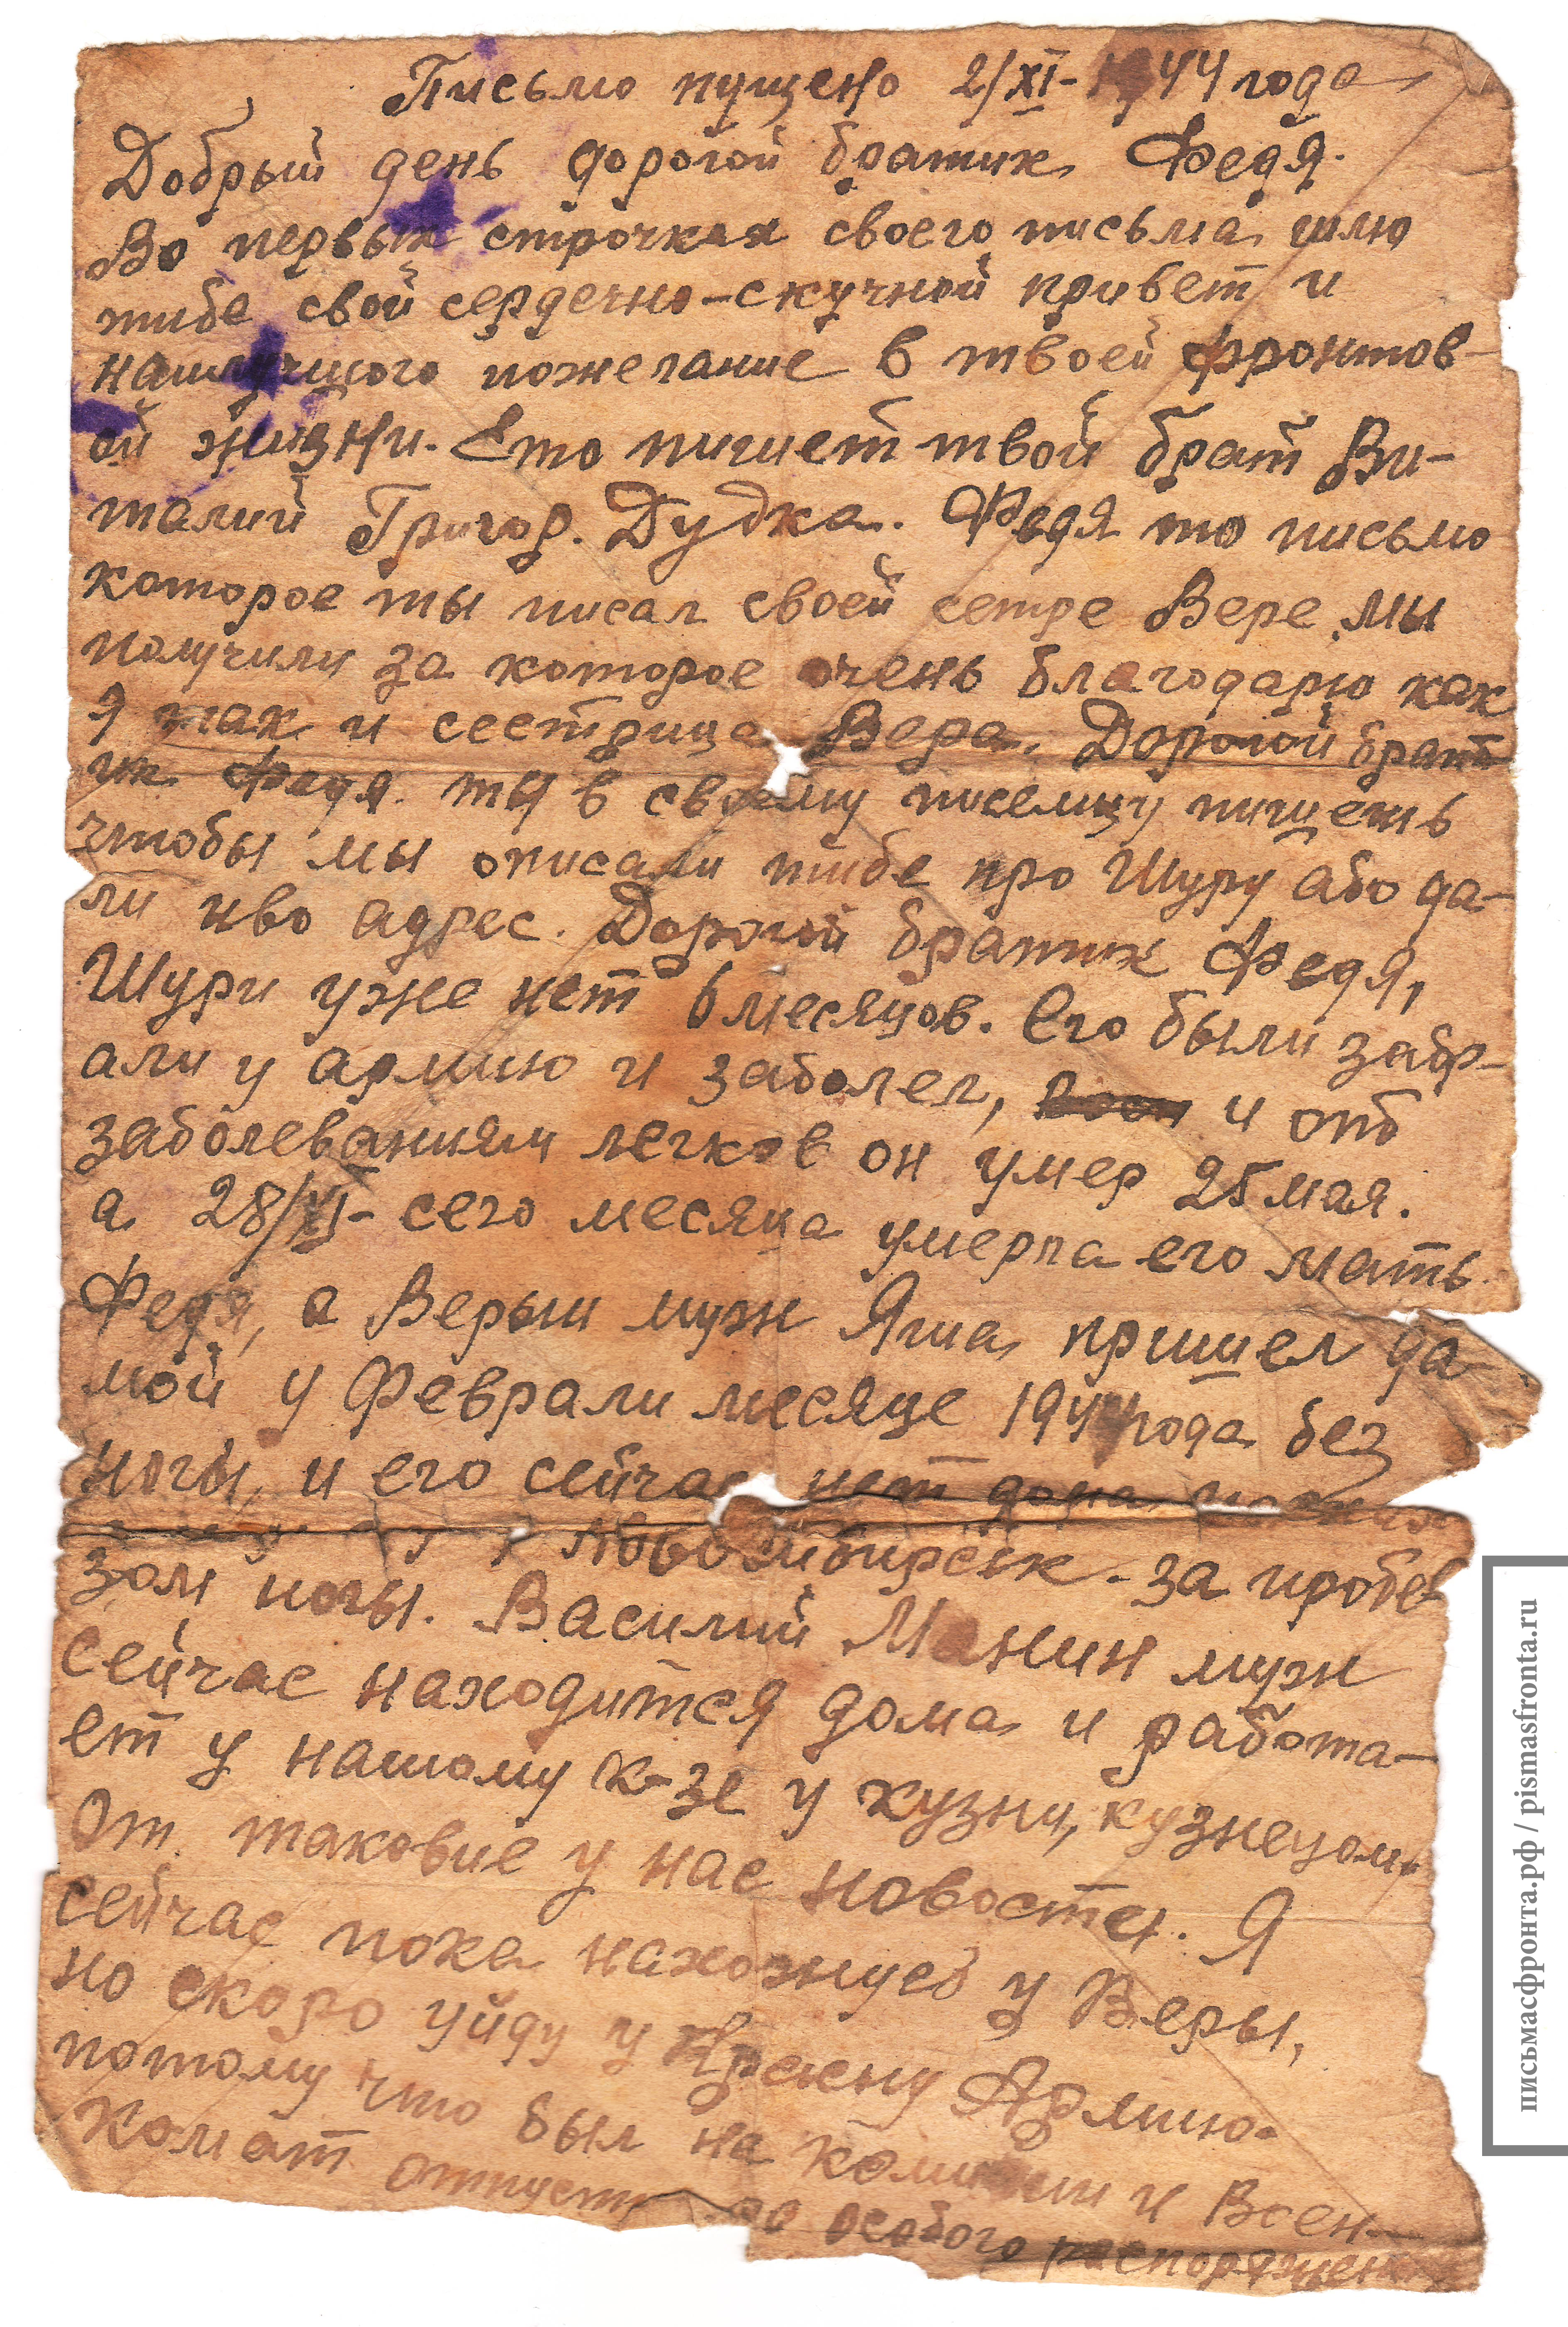 Письмо пущено 2/XI-1944 года
Добрый день дорогой братик Федя.
Во первых строчках своего письма шлю
тибе свой сердечно-скучной привет и
наилучшого пожелание в твоей фронтов-
ой жизни. Ето пишет твой брат Ви-
талий Григор. Дудка. Федя то письмо
которое ты писал своей сетре Вере мы
получили за которое очень благодарю как
я так и сестрица Вера. Дорогой брат
ик Федя ты в своему писемцу пишешь
чтобы мы описали тибе про Шуру або да-
ли иво адрес. Дорогой братик Федя,
Шури уже нет 6 месяцов. Его были забр-
али у армию и заболел, и отб
заболеваниям легков он умер 25 мая.
а 28/XI- сего месяца умерла его мать
Федя, а Верын муж Яша пришел да-
мой у Феврали месяце 1944 года без
ногы, и его сейчас нет дома
Новосибирськ-за пробев
зом ногы. Василий Манин муж
сейчас находится дома и работа-
ет у нашому к-зе у кузни, кузнецом
От таковие у нас новости. Я
сейчас пока нахожусь у Веры,
но скоро уйду у Красну Армию.
потому что был на комисии и Воен-
комат отпусти до особого распоряжен
письмасфронта.рф / pismasfronta.ru